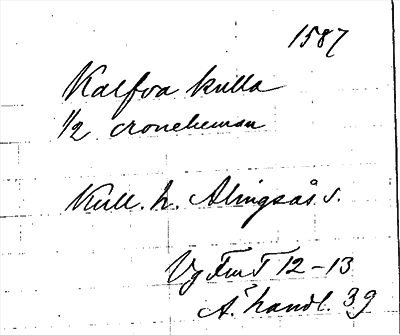 1587
Kalfoa kulla
1/2 croneheman
Kull. h. Alingsås s.
Vg FmT 12-13
A. handl. 39